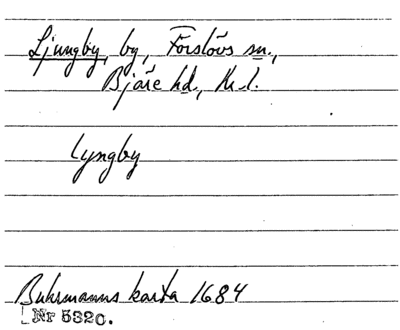 Ljungby, by, Förslövs sn.,
Bjäre hd., Kr. l.
Lyngby
Buhrmanns karta 1684
Nr 5320.